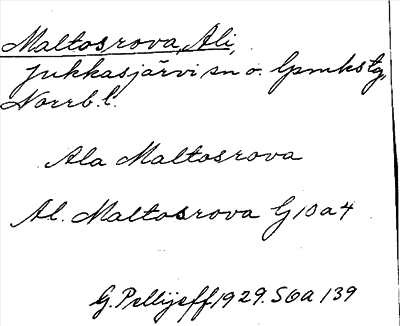 Maltosrova, Ali,
Jukkasjärvi sn o. lpmkstg,
Norrb. l.
Ala Maltosrova
Al. Maltosrova G10a4
G. Pellijeff 1929. S6a 139